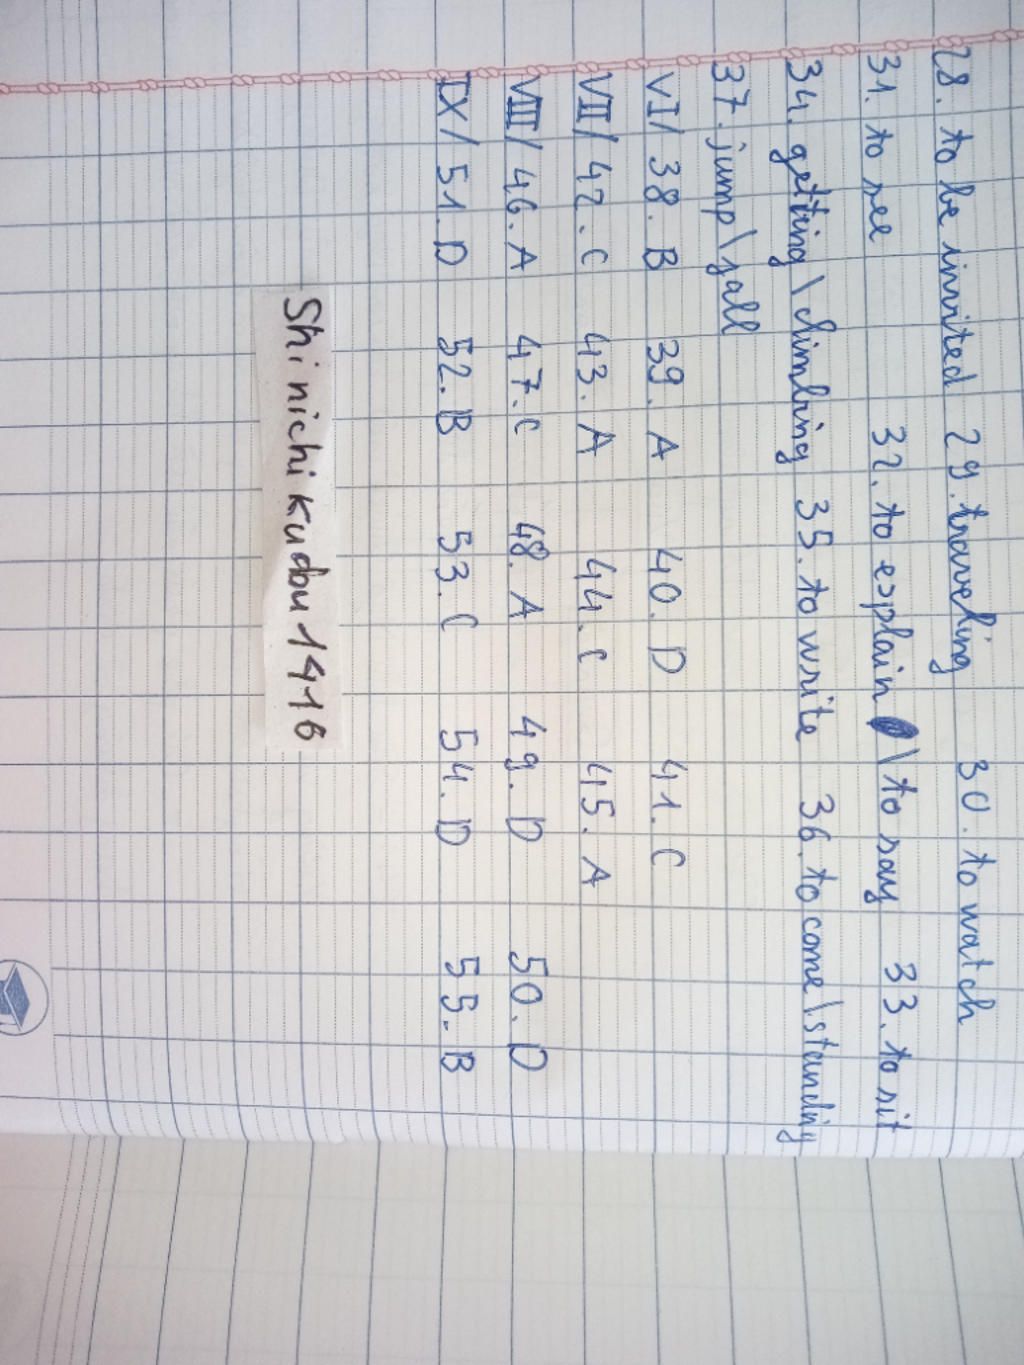 28. to be invited 29. traveling 30. to watch
31. to see 32. to explain \ to say 33. to sit
34. getting \ climbing 35. to write 36. to come \ standing
37. jump \ fall
VI/ 38. B 39. A 40. D 41. C
VII/ 42. C 43. A 44. C 45. A
VIII/ 46. A 47. C 48. A 49. D 50. D
IX/ 51. D 52. B 53. C 54. D 55. B
Shinichikudou1416